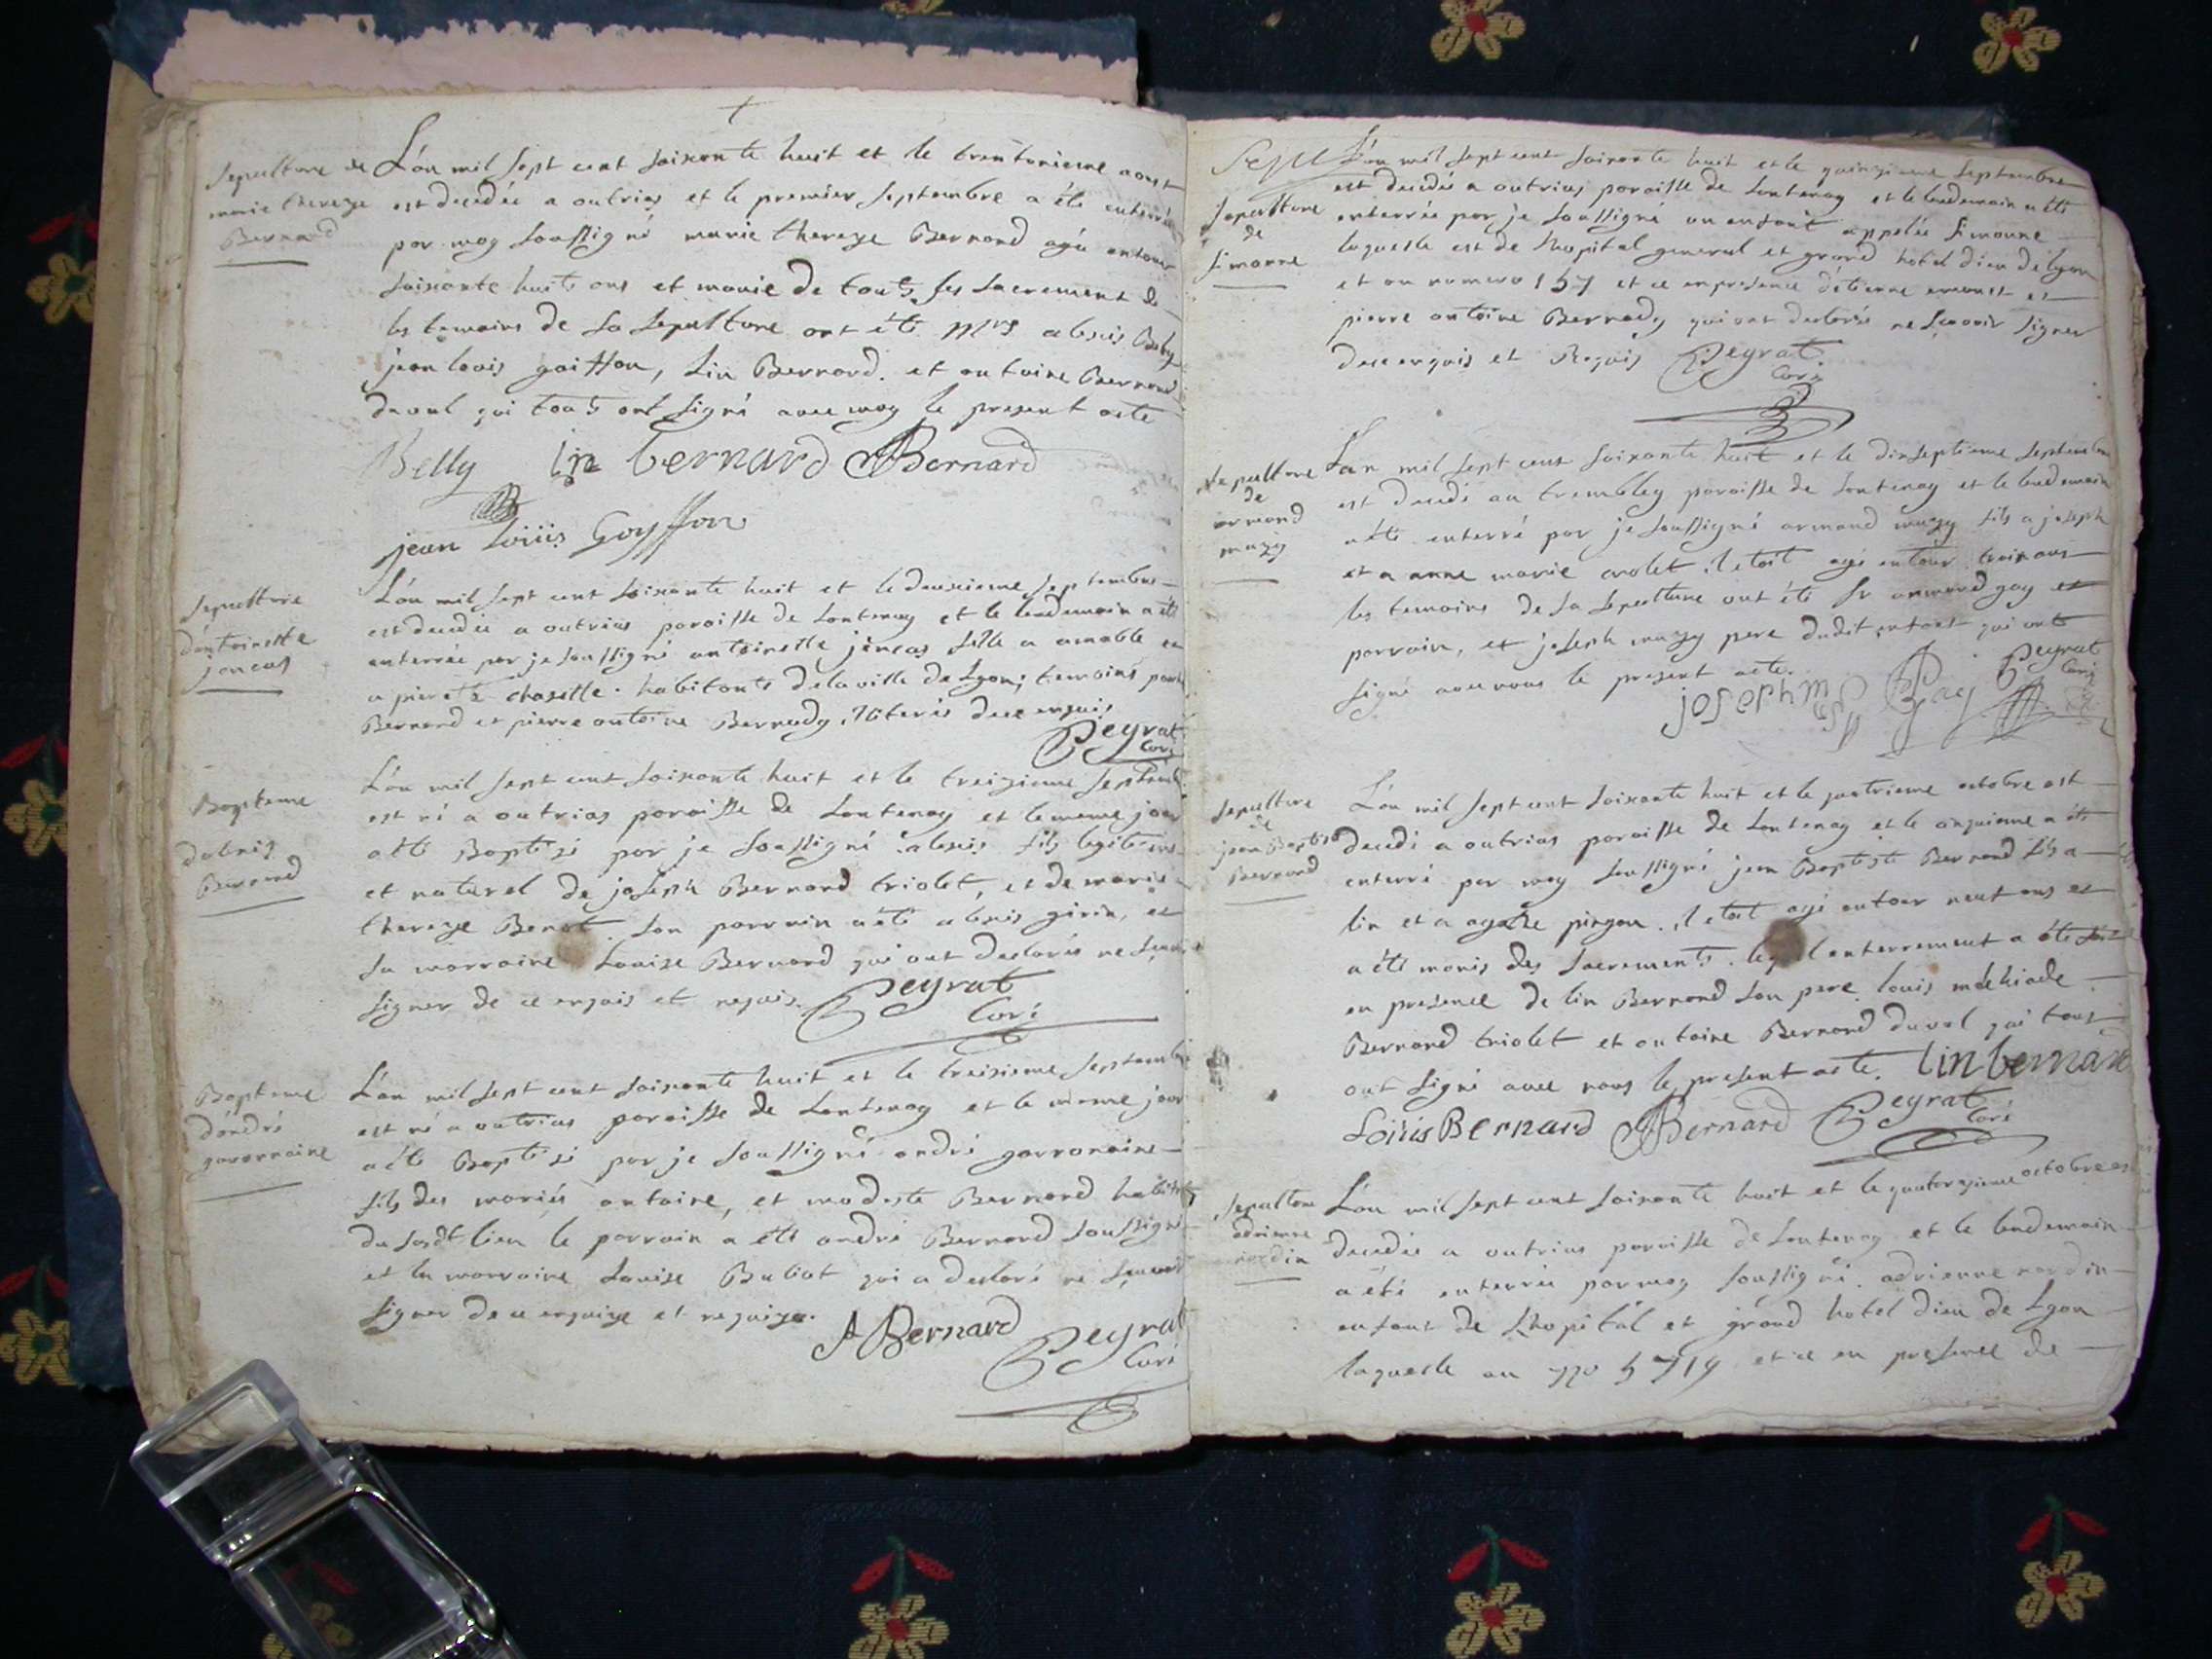 Sepulture de
marie thereze
Bernard
L'an mil sept cent soixante huit et le trentunieme aoust
est decedée a outrias et le premier septembre a été enterrée
par moy soussigné marie thereze Bernard agée entour
soixante huits ans et munie de touts ses sacrement de
les temoins de sa sepulture ont été Mrs alexis Belly
jean louis goiffon, lin Bernard. et antoine Bernard
duval qui touts ont signé avec moy le present acte
Belly lin bernard ABernard
jean Loüis Goyffon
Sepulture
d'antoinette
joncas
L'an mil sept cent soixante huit et le deuxieme septembre
est decedée a outrias paroisse de Lantenay et le lendemain a été
enterrée par je soussigné antoinette joncas fille a amable et
a pierette chazette. habitants de la ville de Lyon; temoins
Bernard et pierre antoine Bernady illiterés de ce enquis
Peyrat
Curé
Bapteme
dalexis
Bernard
L'an mil sept cent soixante huit et le treizieme septembre
est né a outrias paroisse de Lantenay et le meme jour
a été Baptisé par je soussigné alexis fils legitime
et naturel de joseph Bernard triolet, et de marie
thereze Benot. son parrain a été alexis girin, et
sa marraine Louise Bernard qui ont declarés ne scavoir
signer de ce enquis et requis. Peyrat
Curé
Bapteme
d'andré
gavornaine
L'an mil sept cent soixante huit et le treizieme septembre
est né a outrias paroisse de Lantenay et le meme jour
a été Baptisé par je soussigné andré
fils des mariés antoine, et modeste Bernard habitants
du susdt lieu le parrain a été andré Bernard soussigné
et la marraine Louise Buliot qui a declaré ne scavoir
signer de ce enquise et requise.
ABernard
Peyrat
Curé
Sepu
Sepulture
de
simonne
L'an mil sept cent soixante huit et le quinzieme septembre
est decedée a outrias paroisse de Lantenay et le lendemain a été
enterrée par je soussigné un enfant appelée simonne
laquelle est de l'hopital general et grand hotel dieu de lyon
et au numero 157 et ce en presence d'étienne et
pierre antoine Bernady qui ont declarés ne scavoir signer
de ce enquis et Requis Peyrat
Curé
Sepulture
de
armand
mazy
L'an mil sept cent soixante huit et le dixseptieme septembre
est decedé au trembley paroisse de Lantenay et le lendemain
a été enterré par je soussigné armand mazy fils a joseph
et a anne marie crolet. il etoit agé entour trois ans
les temoins de sa sepulture ont été Sr armand gay et
parrain, et joseph mazy pere dudit enfant qui ont
signé avec nous le present acte. Peyrat
Curé
joseph mazy Gay
Sepulture
de
jean Baptiste
Bernard
L'an mil sept cent soixante huit et le quatrieme octobre est
decedé a outrias paroisse de Lantenay et le cinquieme a été
enterré par moy soussigné jean Baptiste Bernard fils a
lin et a agathe pingon. il etoit agé entour neuf ans et
a été munis des sacrements. lequel enterrement a été fait
en presence de lin Bernard son pere. louis melchiade
Bernard triolet et antoine Bernard duval qui tous
ont signé avec nous le present acte. lin bernard
Loüis Bernard ABernard Peyrat
Curé
Sepulture
adrienne
nardin
L'an mil sept cent soixante huit et le quatorzieme octobre est
decedée a outrias paroisse de Lantenay et le lendemain
a été enterrée par moy soussigné. adrienne nardin
enfant de l'hopital et grand hotel dieu de Lyon
laquelle au no 5719 et ce en presence de